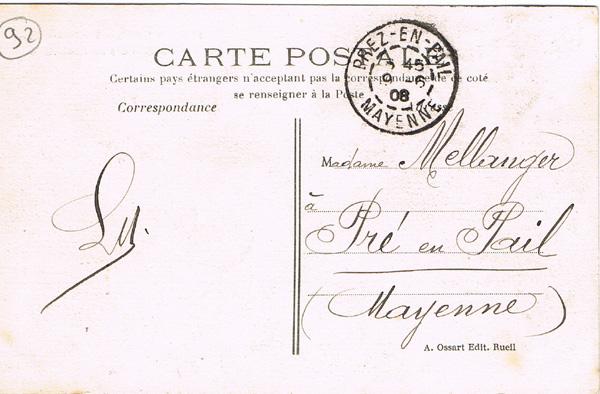 92
CARTE POSTALE
Certains pays étrangers n'acceptant pas la correspondance de ce coté
se renseigner à la Poste
PREZ-EN-PAIL
45
08
MAYENNE
Correspondance
Madame Mellanger
à
Pré en Pail
(Mayenne)
A. Ossart Edit. Rueil